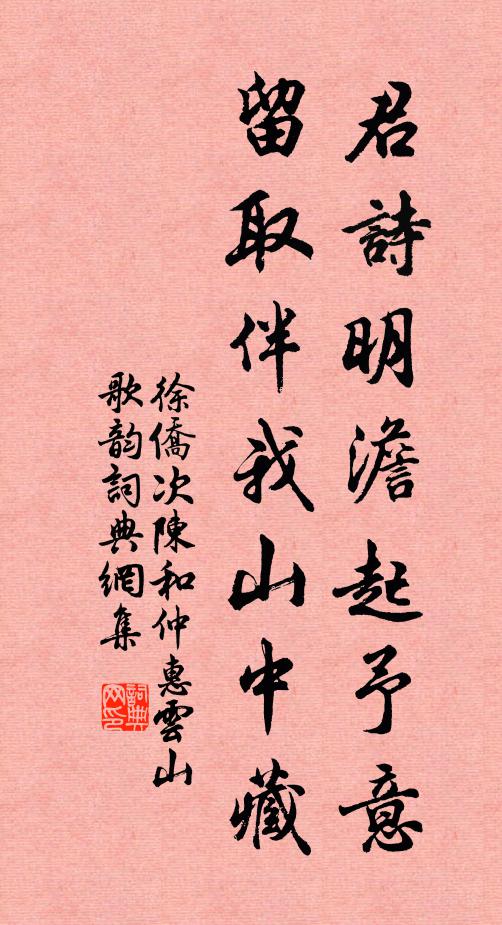 君詩明澹起予意
留取伴我山中藏
徐僑次陳和仲惠雲山
歌韵詞典網集
詞典
网印